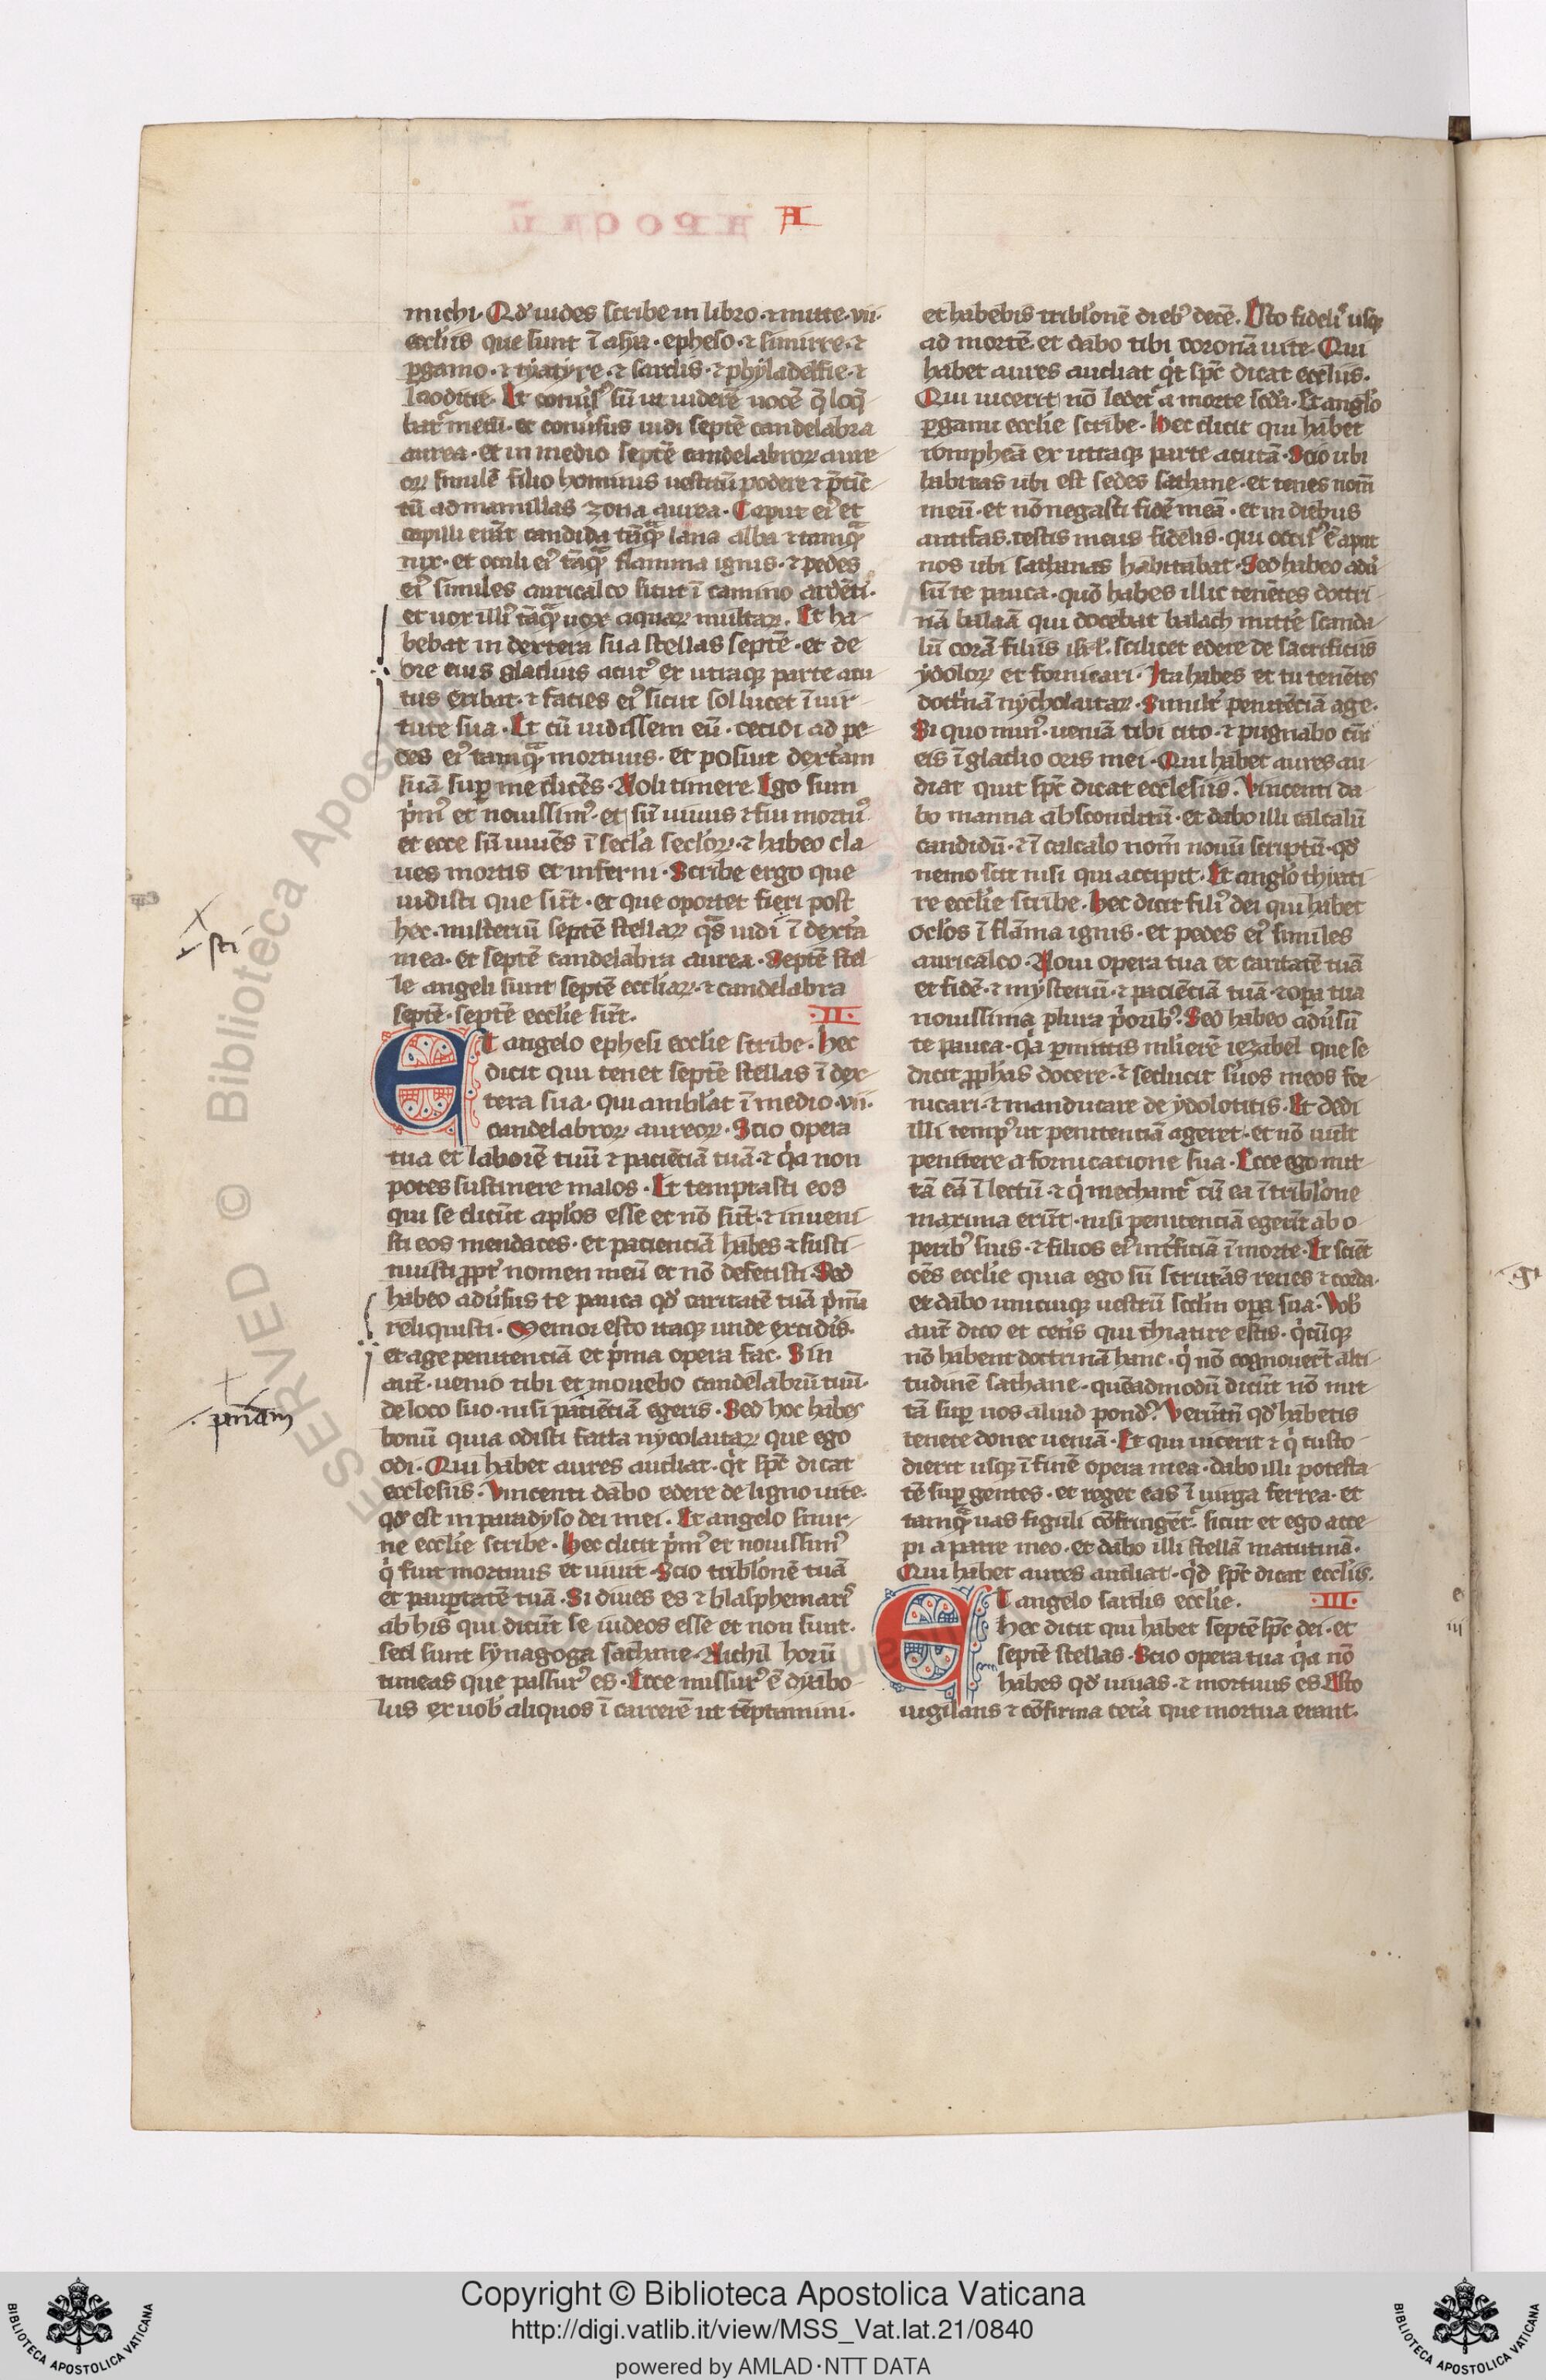 A
michi. Qd' uides scribe in libro. ⁊ mitte. vii.
eccl'iis que sunt ī asya. epheso. ⁊ smirre. ⁊
ꝑgamo. ⁊ tyatyre. ⁊ sardis. ⁊ phyladelfie. ⁊
laoditie. Et conu'sꝰ sū ut uiderē uocē q̄ loq̄
bat' mecū. et conu'sus uidi septē candelabra
aurea. Et in medio septē candelabroꝝ aure
oꝝ similē filio hominis uestitū podere ⁊ p̄cīc
tū ad mamillas zona aurea. Caput eiꝰ et
capilli erāt candida tāqᷓ lana alba ⁊ tamqᷓ
nix. et oculi eiꝰ tāqᷓ flamma ignis. ⁊ pedes
eiꝰ similes auricalco sicut ī camino ardēti.
et uox illiꝰ tāqᷓ uox aquaꝝ multaꝝ. Et ha
bebat in dextera sua stellas septē. et de
ore eius gladius acutꝰ ex utraqꝫ parte acu
tus exibat. ⁊ facies eiꝰ sicut sol lucet ī uir
tute sua. Et cū uidissem eū. cecidi ad pe
des eiꝰ tamqᷓ mortuus. et posuit dext'am
suā suꝑ me dicēs. Noli timere. Ego sum
p'mꝰ et nouissimꝰ. et sū uiuus ⁊ fui mortuꝰ.
et ecce sū uiuēs ī sec'la sec'loꝝ. ⁊ habeo cla
ues mortis et inferni. Scribe ergo que
uidisti que sūt. et que oportet fieri post
hec. misteriū septē stellaꝝ q̄s uidi ī dext'a
mea. et septē candelabra aurea. Septē stel
le angeli sunt septē eccl'iaꝝ. ⁊ candelabra
septē. septē eccl'ie sūt. .II.
Et angelo ephesi eccl'ie scribe. Hec
dicit qui tenet septē stellas ī dex
tera sua. qui ambl'at ī medio .vii.
candelabroꝝ aureoꝝ. Scio opera
tua et laborē tuū ⁊ paciētiā tuā. ⁊ q'a non
potes sustinere malos. Et temptasti eos
qui se dicūt apl'os esse et nō sūt. ⁊ inueni
sti eos mendaces. et pacienciā habes ⁊ susti
nuisti ꝓpt' nomen meū et nō defecisti. Sed
habeo adu'sus te pauca qd' caritatē tuā p'mā
reliquisti. Memor esto itaqꝫ unde excidis.
et age penitenciā et p'ma opera fac. Sin
aut̄. uenio tibi et mouebo candelabrū tuū.
de loco suo. nisi paciētiā egeris. Sed hoc habes
bonū quia odisti facta nycolaitaꝝ que ego
odi. Qui habet aures audiat. q't spc̄ dicat
ecclesiis. Vincenti dabo edere de ligno uite.
qd' est in paradyso dei mei. Et angelo smir
ne eccl'ie scribe. Hec dicit p'mꝰ et nouissimꝰ
q' fuit mortuus et uiuit. Scio tribl'onē tuā
et pauꝑtatē tuā. Si diues es ⁊ blasphemar'
ab his qui dicūt se iudeos esse et non sunt.
sed sunt synagoga sathane. Nichil horū
timeas que passurꝰ es. Ecce missurꝰ ē dyabo
lus ex uob' aliquos ī carcerē ut tēptamini.
et habebis tribl'onē diebꝰ decē. Esto fidel' usqꝫ
ad mortē. et dabo tibi coronā uite. Qui
habet aures audiat q't spc̄ dicat eccl'iis.
Qui uicerit nō ledet' a morte sc̄da. Et angl'o
ꝑgami eccl'ie scribe. Hec dicit qui habet
rompheā ex utraqꝫ parte acutā. Scio ubi
habitas ubi est sedes sathane. et tenes nom̄
meū. et nō negasti fidē meā. et in diebus
antifas. testis meus fidelis. qui occisꝰ ē aput
uos ubi sathanas habitabat. Sed habeo adu'
sū te pauca. quō habes illic tenētes doctri
nā balaā qui docebat balach mitt'e scanda
lū corā filiis isrl'. scilicet edere de sacrificiis
ydoloꝝ et fornicari. Ita habes et tu tenētes
doct'nā nycholaitaꝝ. Similr' penitēciā age.
Si quo minꝰ. ueniā tibi cito. ⁊ pugnabo cū
eis ī gladio oris mei. Qui habet aures au
diat quit spc̄ dicat ecclesiis. Vincenti da
bo manna absconditū. et dabo illi calcalū
candidū. ⁊ ī calcalo nom̄ nouū scriptū. qd'
nemo scit nisi qui accipit. Et angl'o thiati
re eccl'ie scribe. Hec dicit filiꝰ dei qui habet
ocl'os ī flāma ignis. et pedes eiꝰ similes
auricalco. Noui opera tua et caritatē tuā
et fidē. ⁊ mysteriū. ⁊ paciēciā tuā. ⁊ oꝑa tua
nouissima plura p'oribꝰ. Sed habeo adu'sū
te pauca. q'a ꝑmittis mlierē iezabel que se
dicit ꝓph'as docere. ⁊ seducit s'uos meos for
nicari. ⁊ manducare de ydolotitis. Et dedi
illi tempꝰ ut penitenciā ageret. et nō uult
penitere a fornicatione sua. Ecce ego mit
tā eā ī lectū. ⁊ q' mechant' cū ea ī tribl'one
maxima erūt. nisi penitenciā egerīt ab o
peribꝰ suis. ⁊ filios eiꝰ int'ficiā ī morte. Et sciēt
oēs eccl'ie quia ego sū scrutās renes ⁊ corda.
et dabo unicuiqꝫ uestrū scd'm oꝑa sua. Vob'
aut̄ dico et cet'is qui thiatire estis. q'cūqꝫ
nō habent doctrinā hanc. q' nō cognouer̄t alti
tudinē sathane. quēadmodū dicūt nō mit
tā suꝑ uos aliud pondꝰ. Verūtn̄ qd' habetis
tenete donec ueniā. Et qui uicerit ⁊ q' custo
dierit usqꝫ ī finē opera mea. dabo illi potesta
tē suꝑ gentes. et reget eas ī uirga ferrea. et
tamqᷓ uas figuli cōfringēt'. sicut et ego acce
pi a patre meo. et dabo illi stellā matutinā.
Qui habet aures audiat. q'd spc̄ dicat eccl'iis.
Et angelo sardis eccl'ie. .III.
Hec dicit qui habet septē spc̄ dei. et
septē stellas. Scio opera tua q'a nō
habes qd' uiuas. ⁊ mortuus es. Esto
uigilans ⁊ cōfirma cet'a que mortua erant.
sti
pm̄am
Copyright © Biblioteca Apostolica Vaticana
http://digi.vatlib.it/view/MSS_Vat.lat.21/0840
powered by AMLAD·NTT DATA
BIBLIOTECA APOSTOLICA VATICANA
BIBLIOTECA APOSTOLICA VATICANA